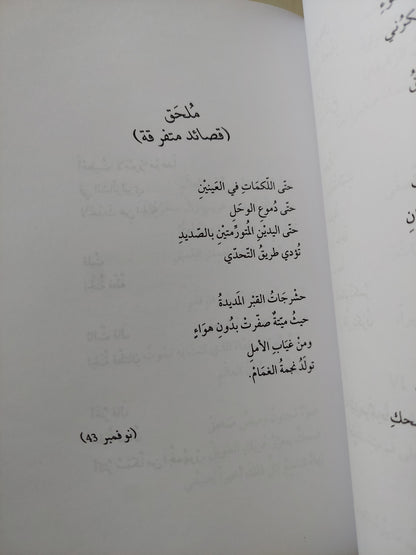 مُلحَق
(قصائد متفرقة)
حتّى اللّكمَاتِ في العَينَيْنِ
حتّى دُموعِ الوحَل
حتّى اليدينِ المُتورِّمتَينِ بالصّديدِ
تُؤدي طريقُ التّحدّي
حشرجَاتُ القبْر المَديدةُ
حيثُ ميّتةٌ صفّرتْ بدُونِ هوَاءٍ
ومنْ غيَابِ الأملِ
تولَدُ نجمةُ الغمَامْ.
(نوفمبر 43)